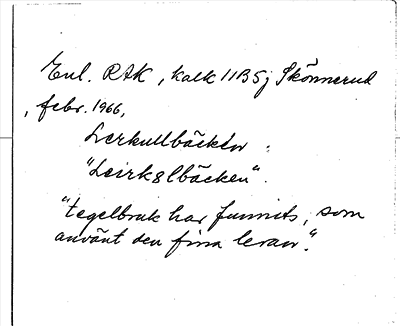 Enl. RAK, kalk 11B5j Skönnerud
, febr. 1966,
Lerkullbäcken
"Leirkølbäcken".
"tegelbruk har funnits, som
använt den fina leran".